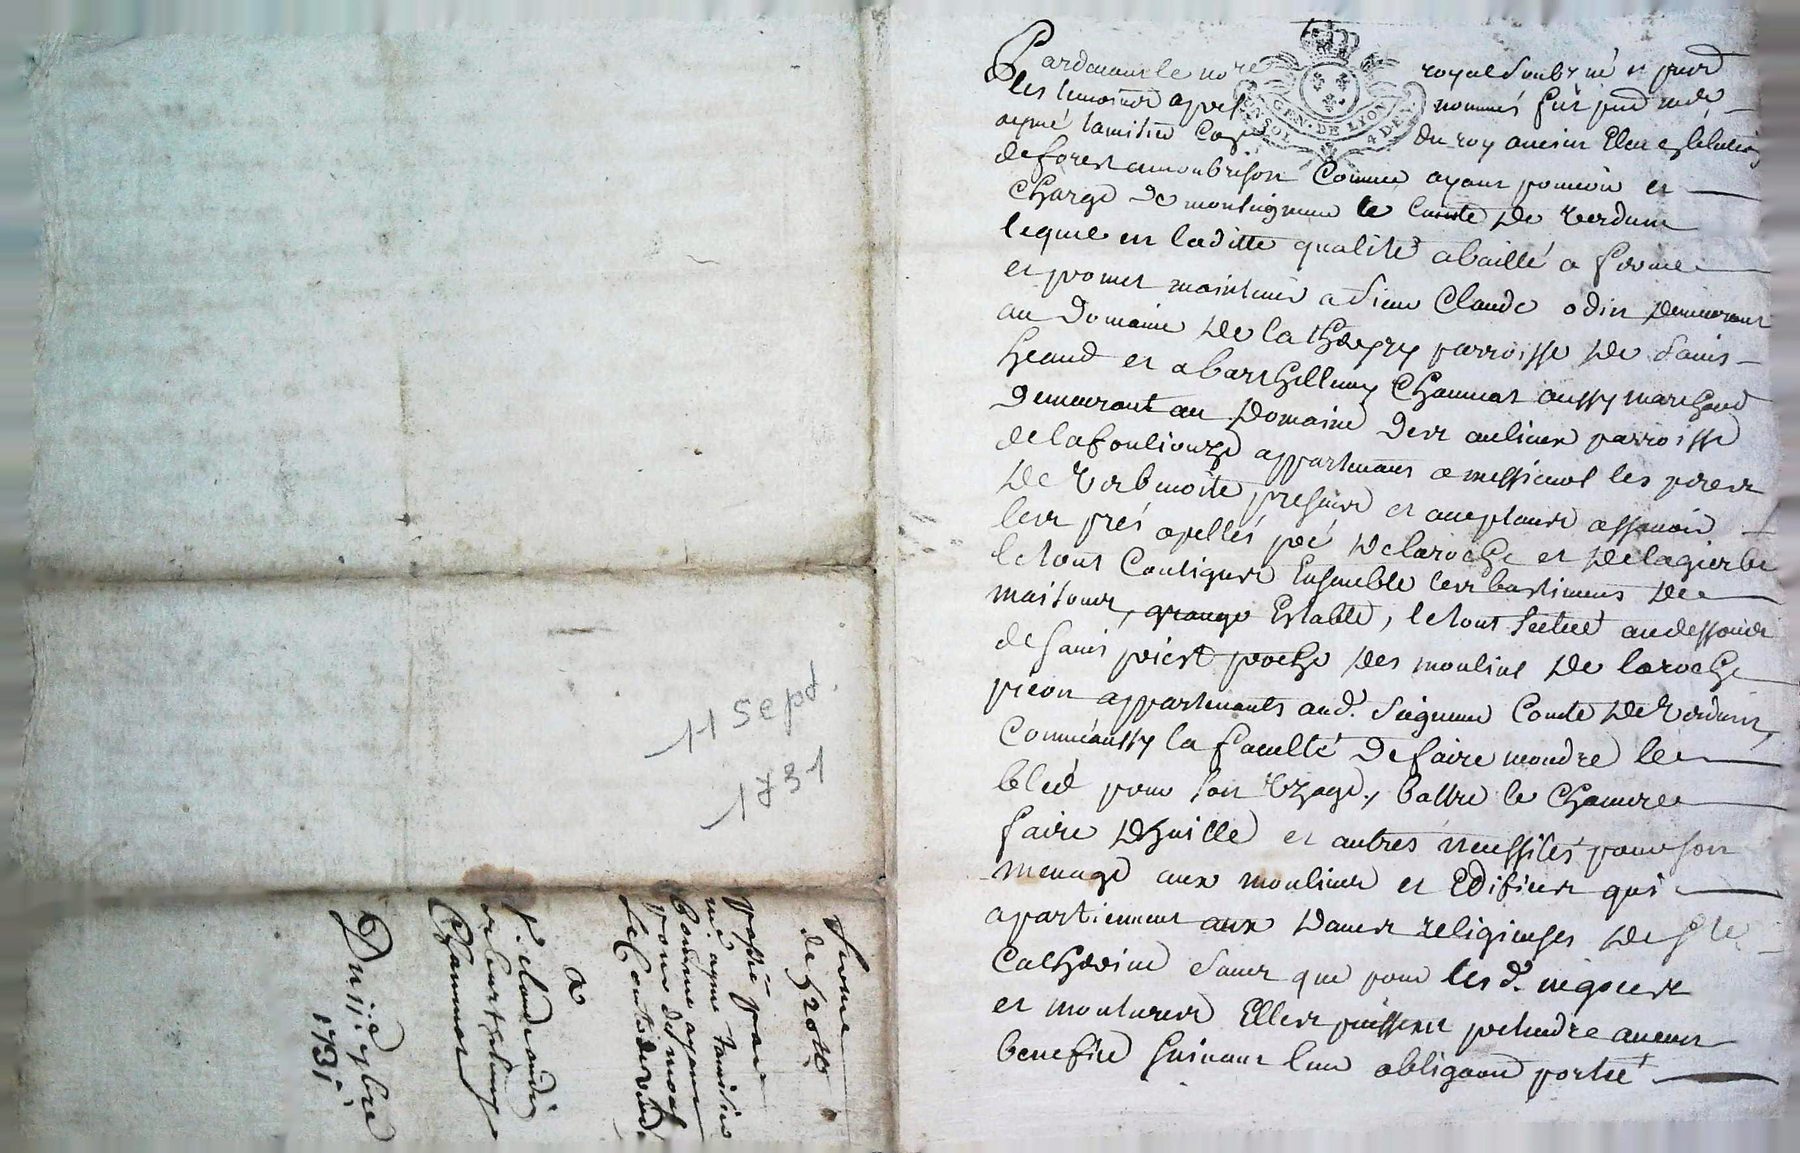 Pardevant le no.re royal soubz.né et pnts
les temoins apres nommés fut pnt mre
aymé tamisier du roy ancien Eleu en lelection
de forest a monbrison Comme ayant pouvoir et
Charge de monseigneur le Comte de Verdun
lequel en laditte qualité a baillé a ferme
et promet maintenir a sieur Claude odin demeurant
au Domaine de la parroisse de Saint
heand et a barthellemy Chaumat aussy marchand
demeurant au Domaine des aulieux parroisse
de lafouliouze appartenant a messieurs les peres
de valbenoite, presents et acceptants assavoir
les prés apellés pré de laroche et de lagierbe
le tout Contigus Ensemble les bastiments de
maisons, grange Estable, le tout scitué audessous
de saint priest proche des moulins de laroche
appartenants aud. seigneur Comte de Verdun,
Comme aussy la faculté de faire moudre le
bled pour son Uzage, battre le Chanvre
faire d'huille et autres necessités pour son
menage aux moulins et Edifices qui
apartiennent aux Dames religieuses de Ste
Catherine sans que pour lesd.
et moutures Elles puissent pretendre aucun
benefice suivant leur obligaon portée
11 Sept.
1731
ferme
de
passé par
me aymé tamisier
Comme ayant
pouvoir de mons.r
le Comte de Verdun
a
s. claude odin
et barthelemy
Chaumat
Du 11e 7bre
1731
GEN. DE LYON
4 DEN